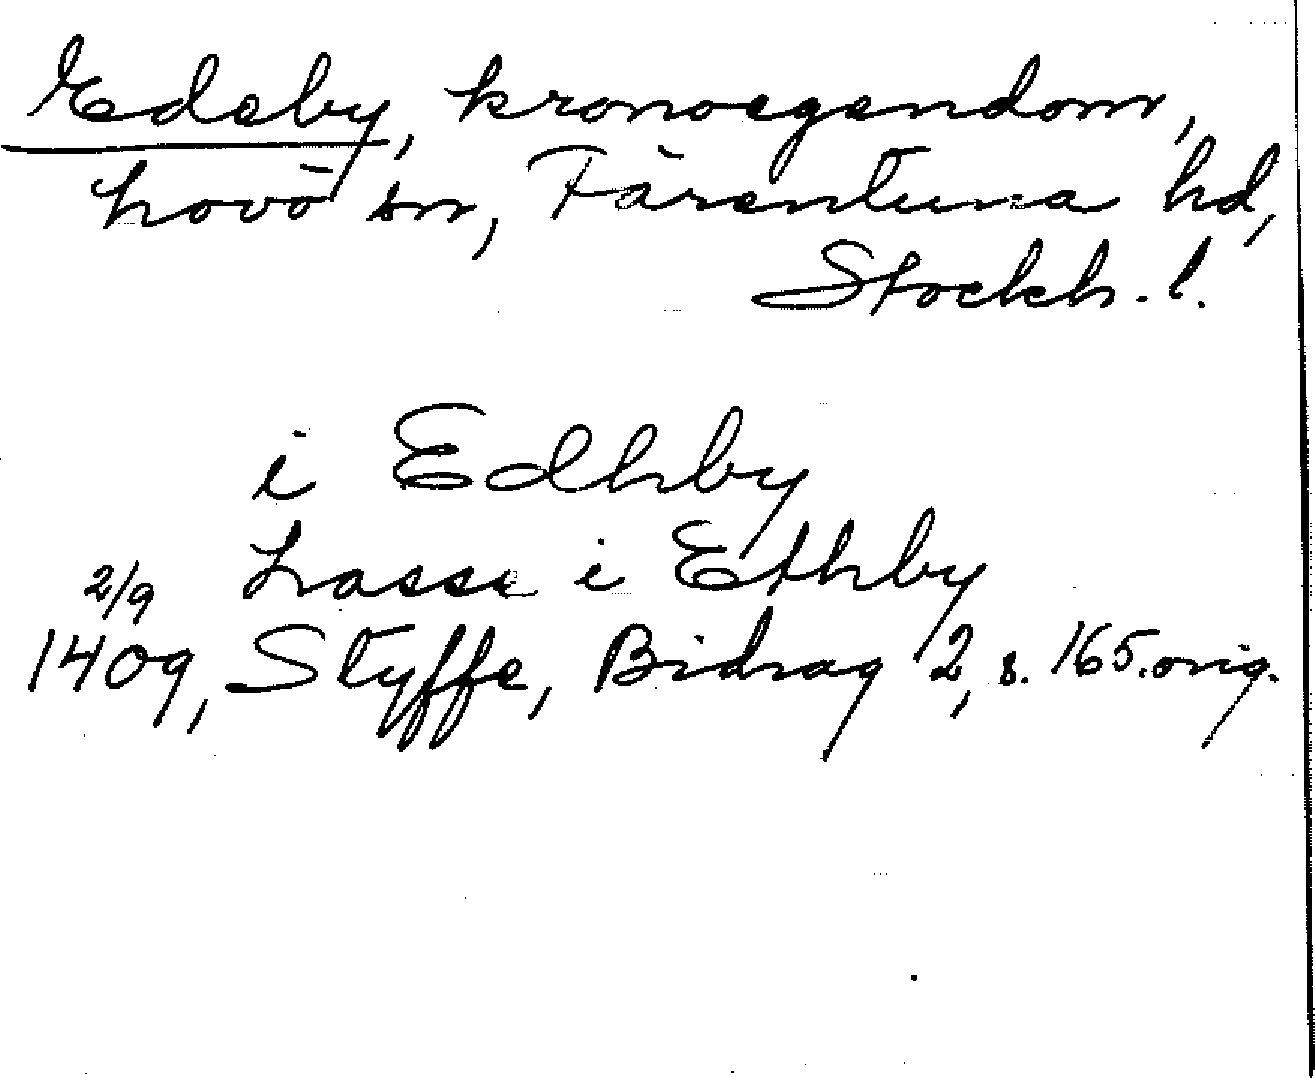 Edeby, kronoegendom,
Lovö sn, Färentuna hd,
Stockh. l.
i Edhby
Lasse i Ethby
2/9
1409, Styffe, Bidrag 2, s. 165. orig.